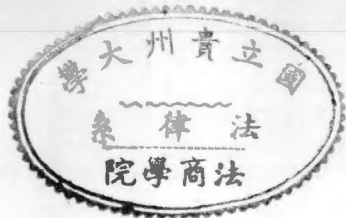 國立貴州大學
法律系
法商學院